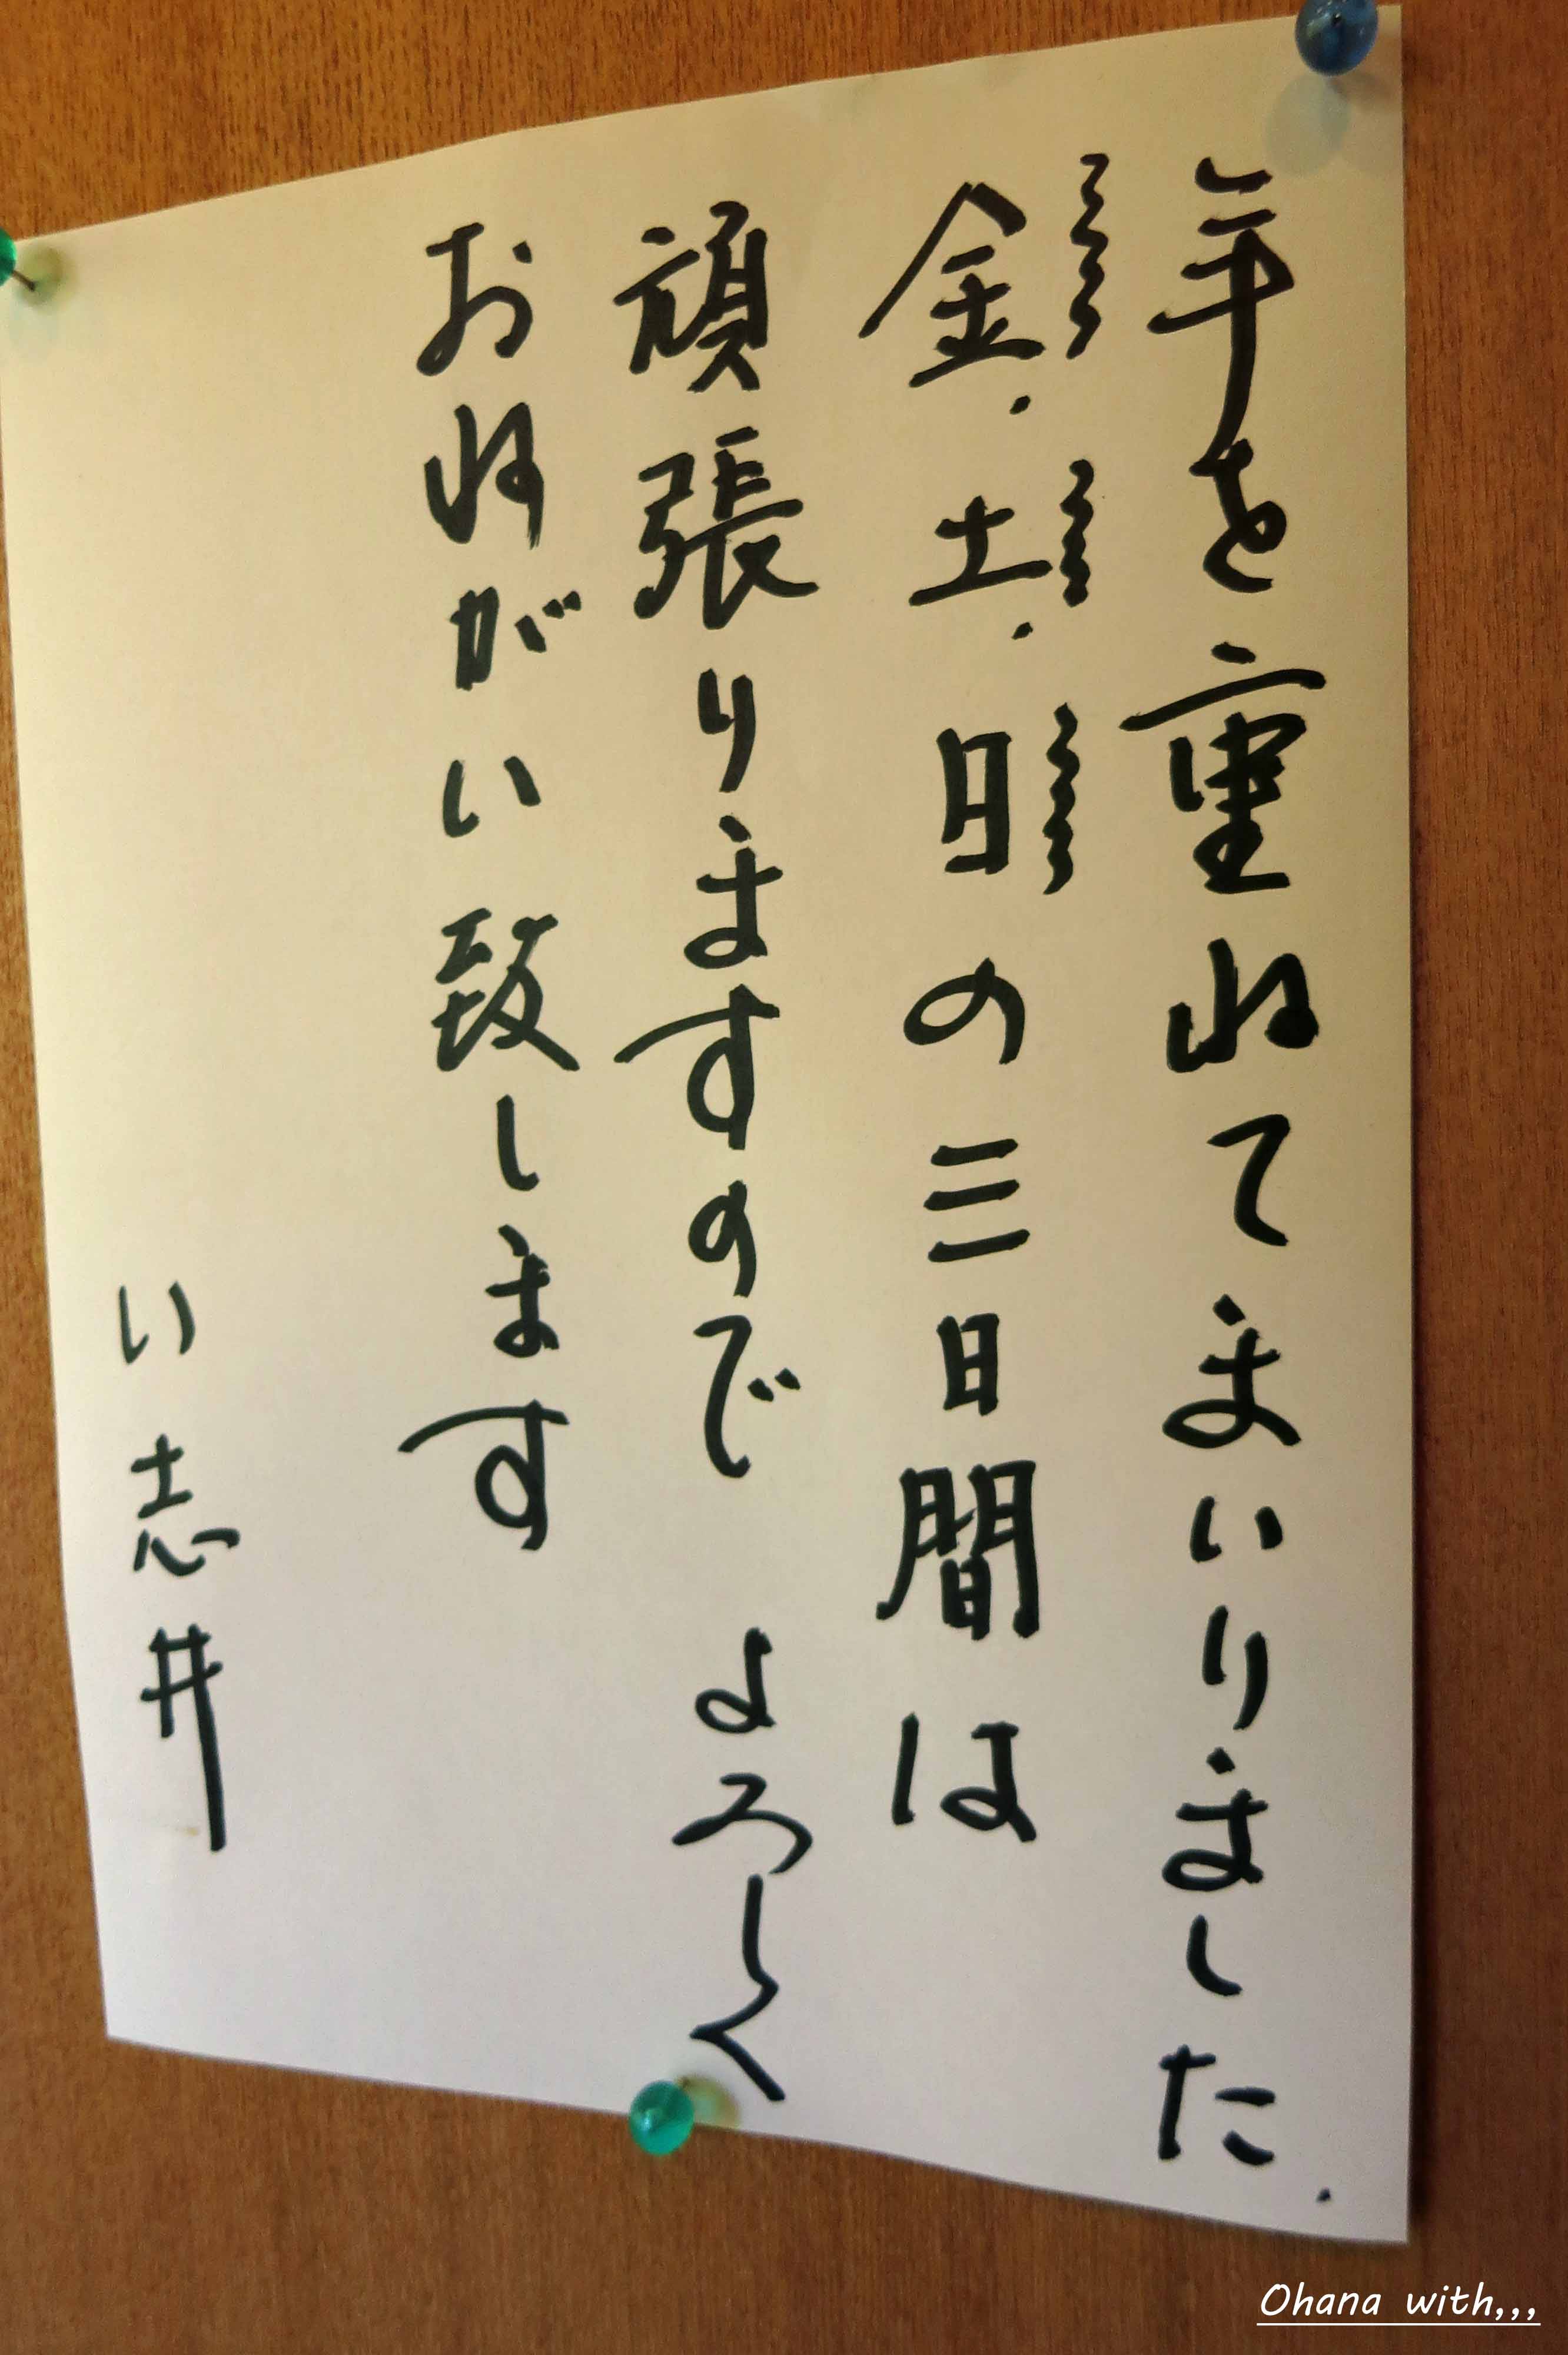 年を重ねてまいりました.
金.土.日の三日間は
頑張りますので よろしく
おねがい致します
い志井
Ohana with,,,